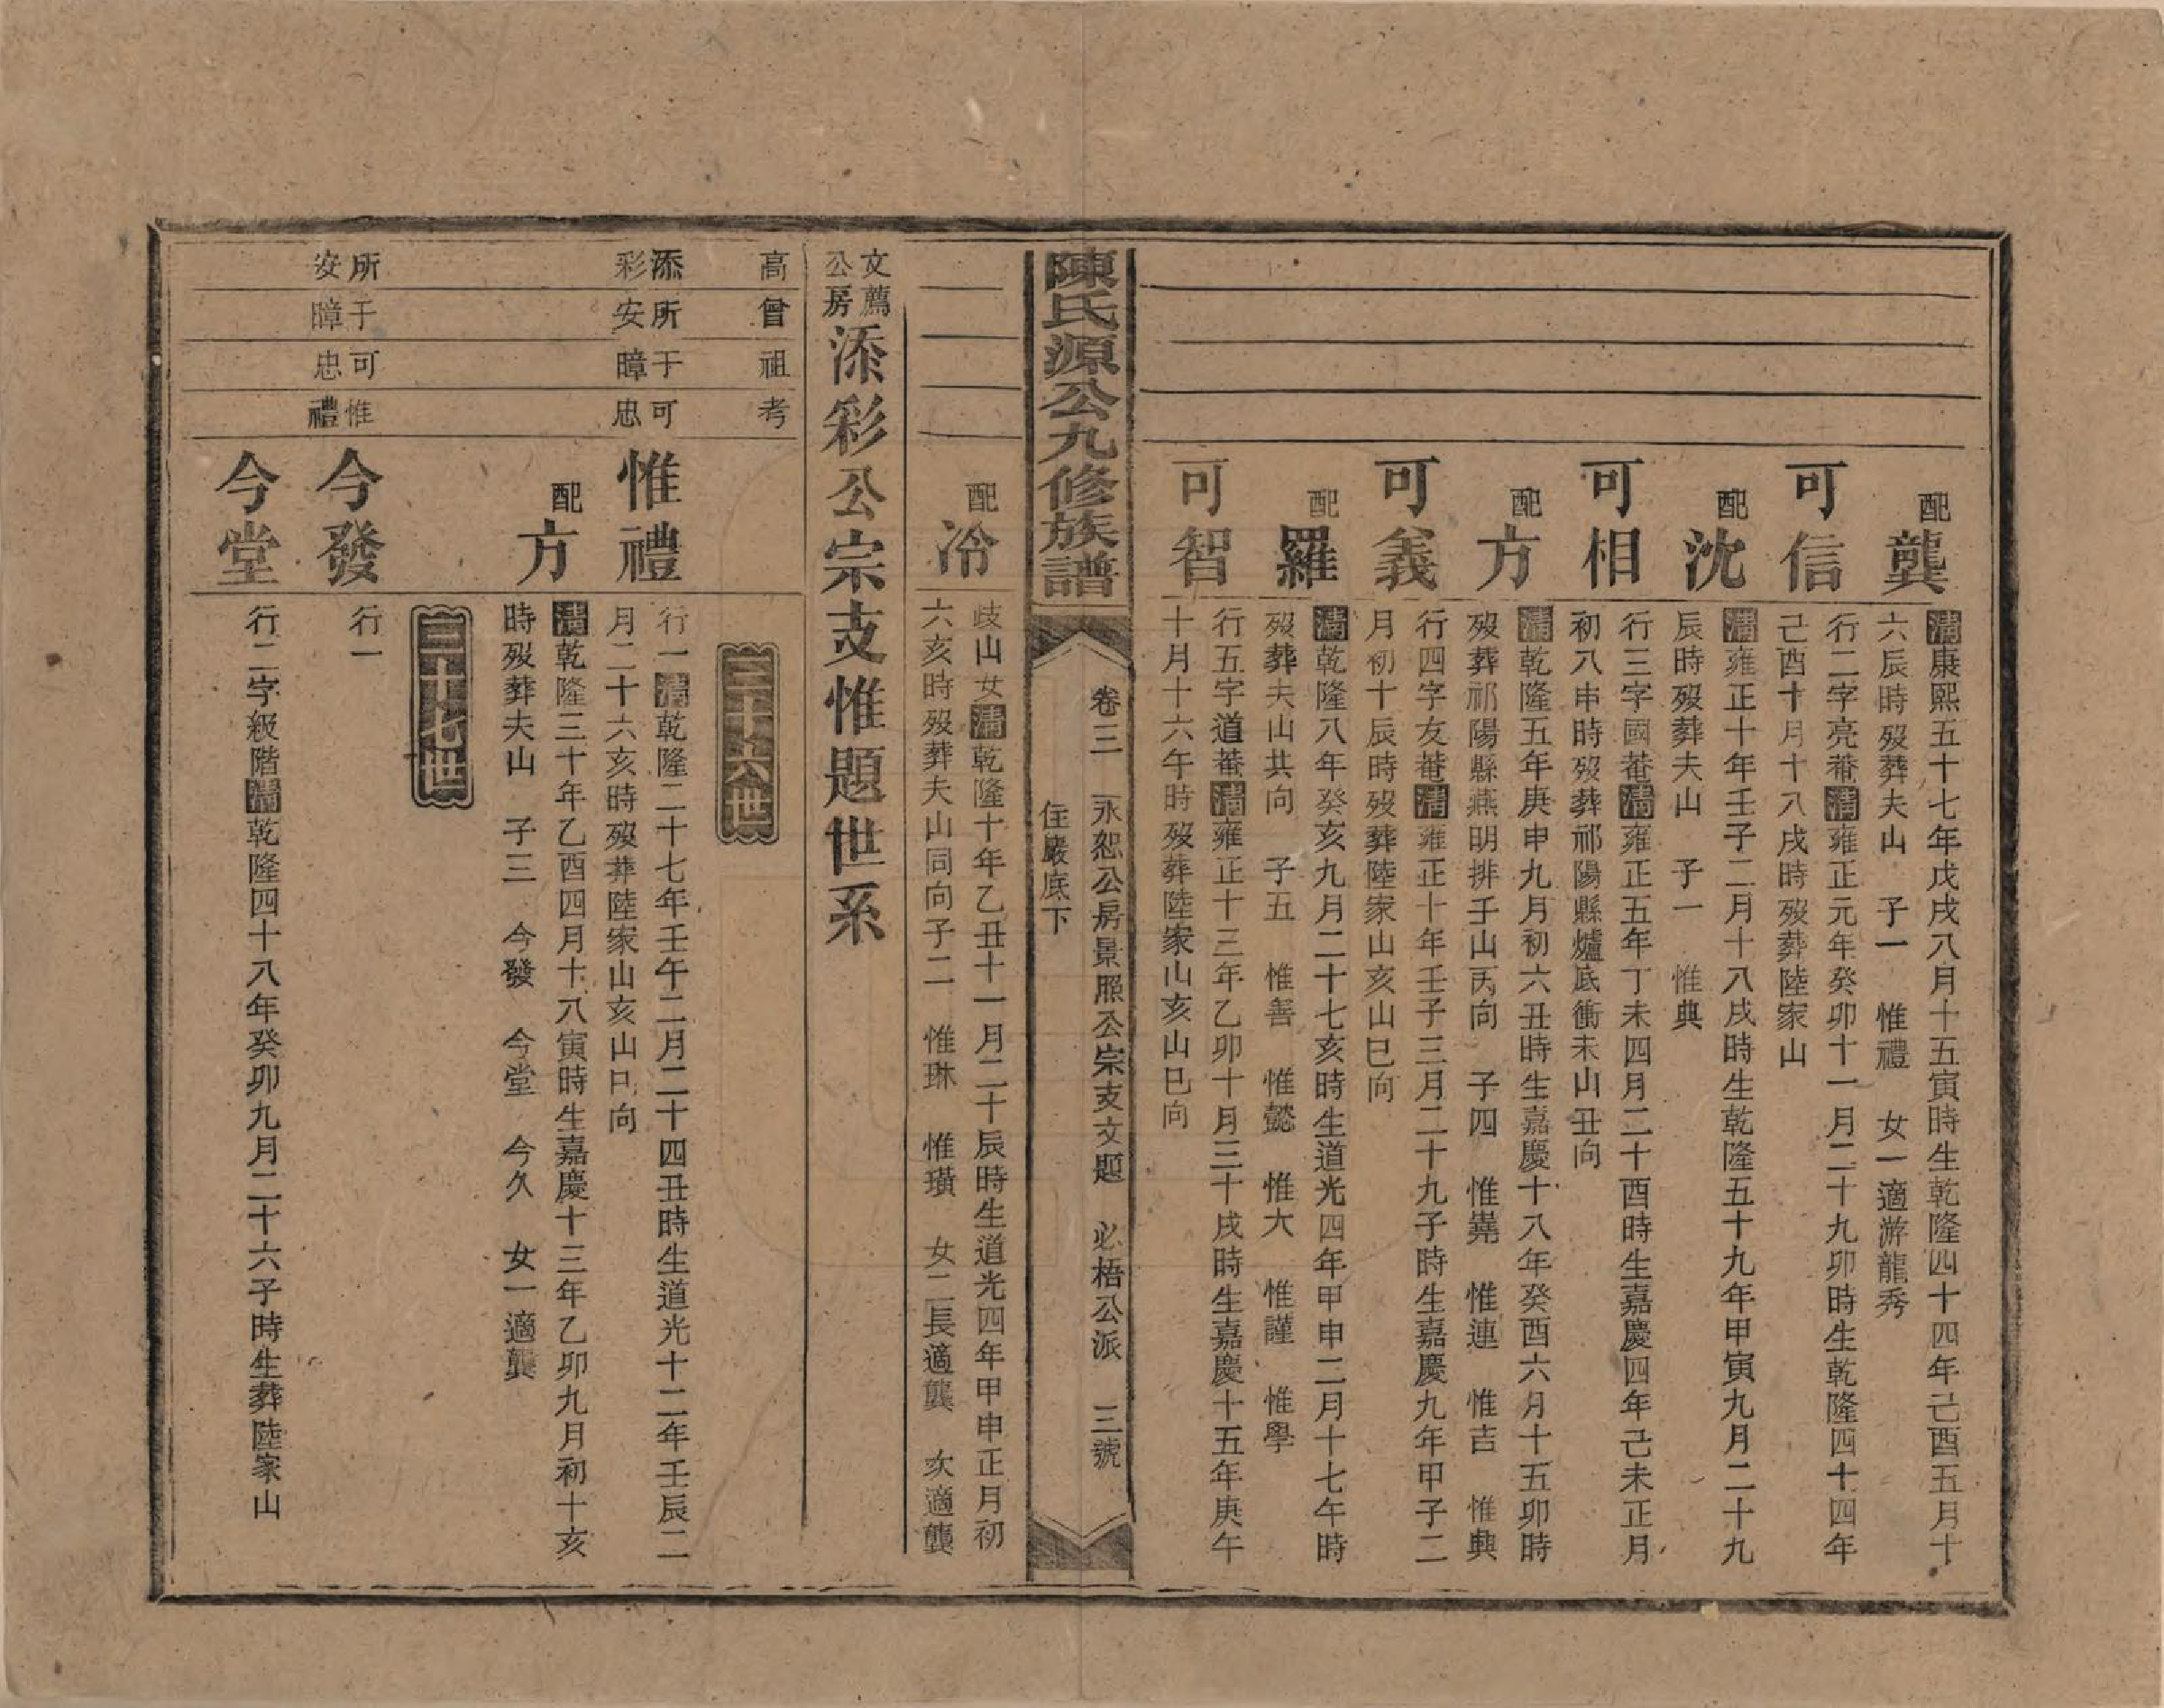 配龔
清康熙五十七年戊戌八月十五寅時生乾隆四十四年己酉五月十
六辰時歿葬夫山　子一　惟禮　女一適游龍秀
可信
行二字亮菴清雍正元年癸卯十一月二十九卯時生乾隆四十四年
己酉十月十八戌時歿葬陸家山
配沈
清雍正十年壬子二月十八戌時生乾隆五十九年甲寅九月二十九
辰時歿葬夫山　子一　惟典
可相
行三字國菴清雍正五年丁未四月二十酉時生嘉慶四年己未正月
初八申時歿葬祁陽縣爐底衝未山丑向
配方
清乾隆五年庚申九月初六丑時生嘉慶十八年癸酉六月十五卯時
歿葬祁陽縣燕明排壬山丙向　子四　惟堯　惟連　惟吉　惟興
可義
行四字友菴清雍正十年壬子三月二十九子時生嘉慶九年甲子二
月初十辰時歿葬陸家山亥山巳向
配羅
清乾隆八年癸亥九月二十七亥時生道光四年甲申二月十七午時
歿葬夫山共向　子五　惟善　惟懿　惟大　惟謹　惟學
可智
行五字道菴清雍正十三年乙卯十月三十戌時生嘉慶十五年庚午
十月十六午時歿葬陸家山亥山巳向
陳氏源公九修族譜
卷三　永恕公房景照公宗支文題　必梧公派　三號
住巖底下
配冷
歧山女清乾隆十年乙丑十一月二十辰時生道光四年甲申正月初
六亥時歿葬夫山同向子二　惟琳　惟璜　女二長適龔　次適龔
文薦公房
添彩公宗支惟題世系
高曾祖考
三十六世
添彩　所安　于暲　可忠
惟禮
行一清乾隆二十七年壬午二月二十四丑時生道光十二年壬辰二
月二十六亥時歿葬陸家山亥山巳向
配方
清乾隆三十年乙酉四月十八寅時生嘉慶十三年乙卯九月初十亥
時歿葬夫山　子三　今發　今堂　今久　女一適龔
三十七世
所安　于暲　可忠　惟禮
今發
行一
今堂
行二字級階清乾隆四十八年癸卯九月二十六子時生葬陸家山